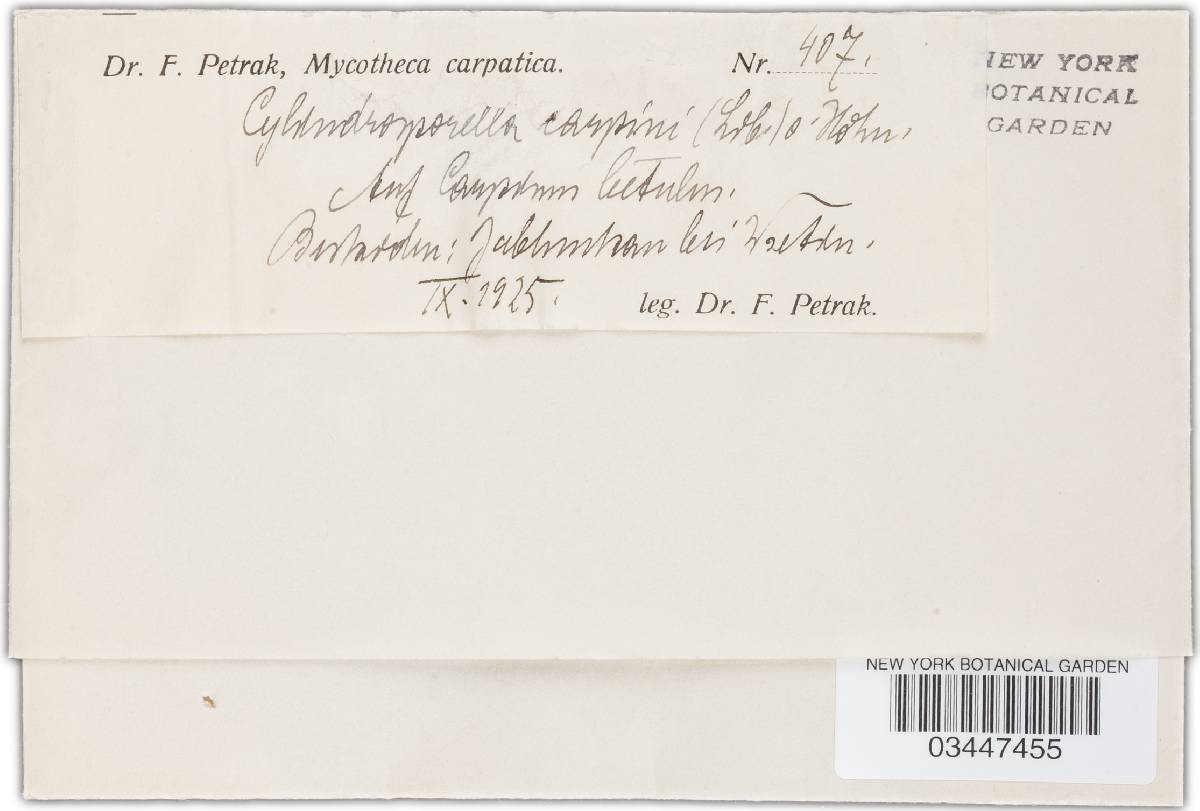 Dr. F. Petrak, Mycotheca carpatica. Nr. 407.
NEW YORK
BOTANICAL
GARDEN
Cylindrosporella carpini (Lib.) v. Höhn.
Auf Carpinus betulus.
Beskiden: Jablunkau bei Wsetin.
IX. 1925. leg. Dr. F. Petrak.
NEW YORK BOTANICAL GARDEN
03447455